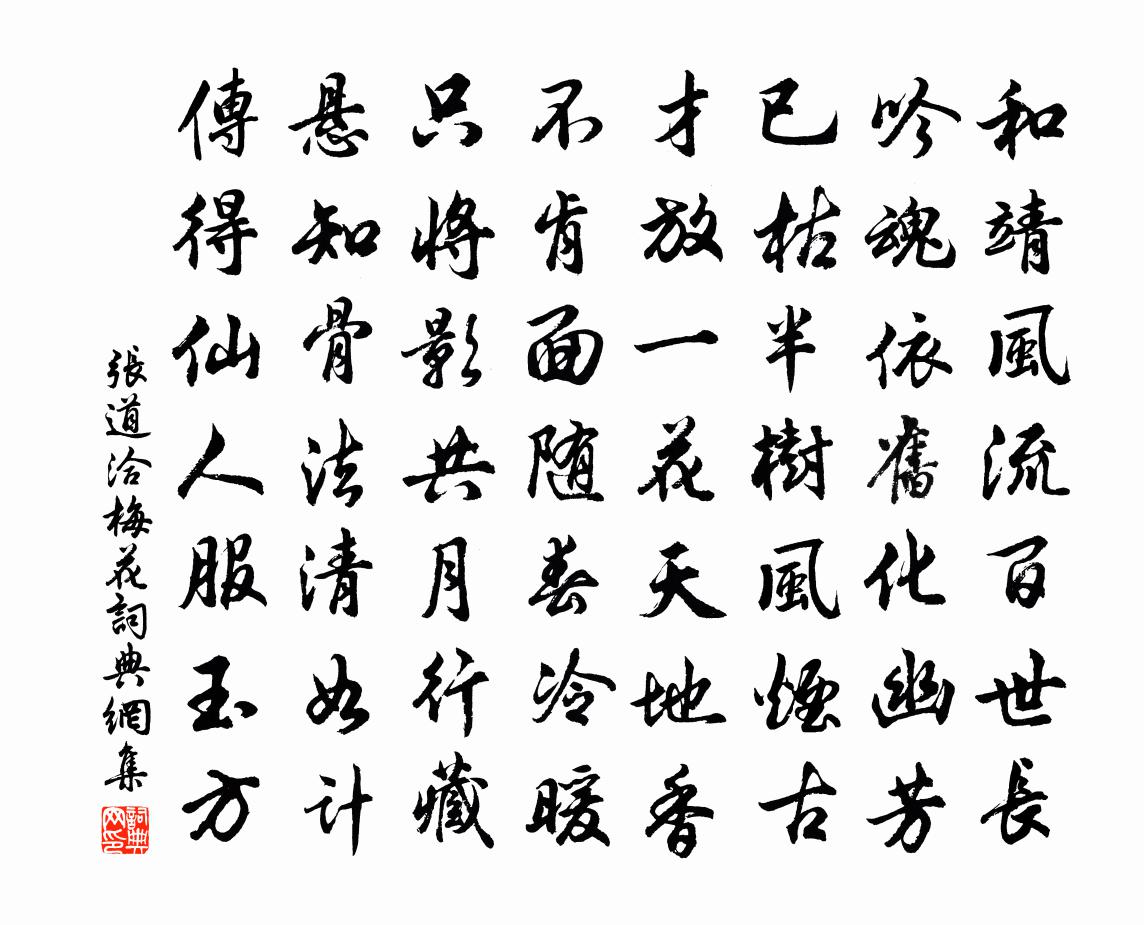 和靖風流百世長
吟魂依舊化幽芳
已枯半樹風煙古
才放一花天地香
不肯面随春冷暖
只將影共月行藏
悬知骨法清如計
傳得仙人服玉方
張道洽梅花詞典網集
詞典网印